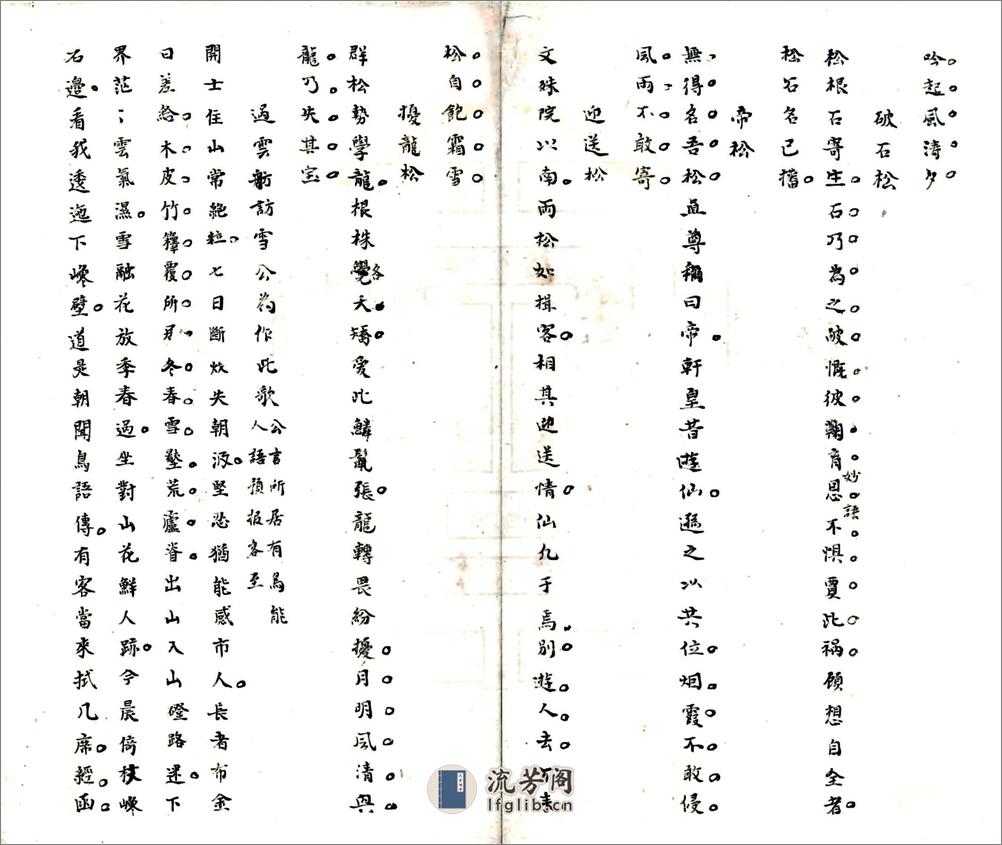 吟起風濤夕
破石松
松根石寄生石乃為之破慨彼鞠育恩不惧賈此禍願想自全者
妙語
松石名已擅
帝松
無得名吾松並尊稱曰帝軒皇昔遊仙遜之以共位烟霞不敢侵
風雨不敢寄
迎送松
文殊院以南兩松如揖客相其迎送情仙凡于焉別遊人去
松自飽霜雪
擾龍松
群松勢學龍根株覺夭矯愛比鱗鬣張龍轉畏紛擾月明風清與
各
龍乃失其宝
過雲舫訪雪公為作此歌公言所居有鳥能
人語預報客至
開士住山常絶粒七日斷炊失朝汲堅忍猶能感市人長者布金
日差給木皮竹籜覆所居冬春雪墊荒廬脊出山入山磴路迷下
界茫〻雲氣濕雪融花放季春過坐對山花鮮人跡今晨倚杖嶫
石邊看我透迤下嶫壁道是朝聞鳥語傳有客當來拭几席經函
流芳阁
lfglib.cn